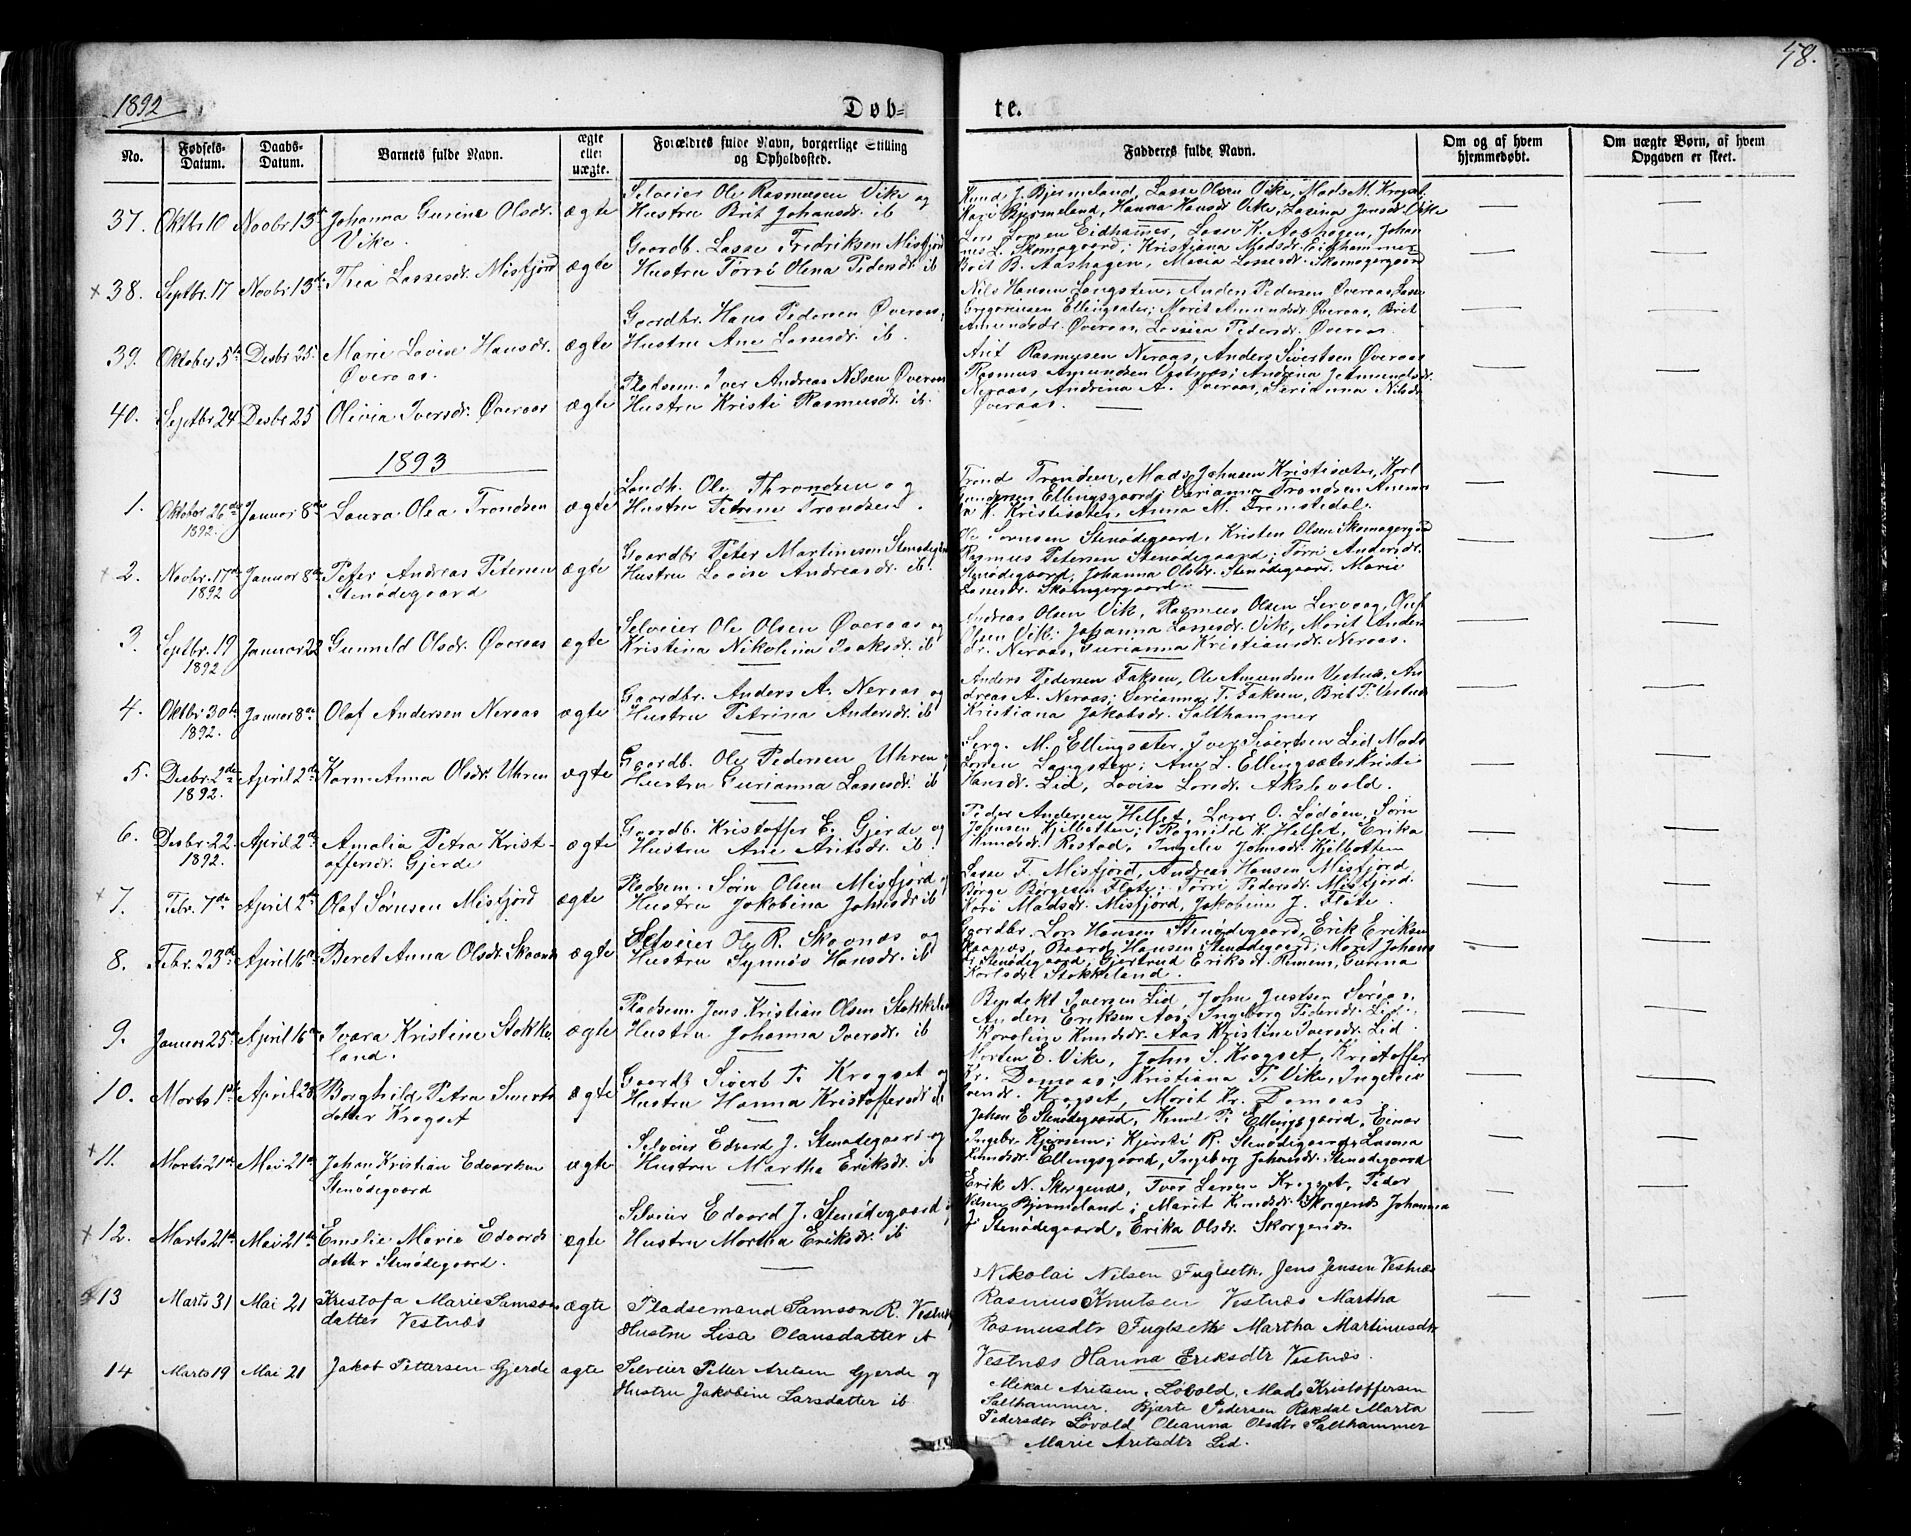 58.
1892
Døb-
te.
No.
Fødsels-
Datum.
Daabs-
Datum.
Barnets fulde Navn.
ægte
eller
uægte.
Forældres fulde Navn, borgerlige Stilling
og Opholdssted.
Fadderes fulde Navn.
Om og af hvem
hjemmedøbt.
Om uægte Børn, af hvem
Opgaven er skeet.
37. Oktbr 10 Novbr 13de Johanna Gurine Olsdr. Vike. ægte
Selveier Ole Rasmusen Vike og
Hustru Brit Johansdr. ib
Knud J. Bjermeland, Lasse Olsen Vike, Mads M. Krogset
Kari Bjermeland, Hanna Hansdr Vike, Lasina Jensdr Vike
x 38. Septbr. 17 Novbr 13de Thea Lassesdr. Misfjord ægte
Gaardb. Lasse Fredriksen Misfjord
Hustru Tørri Olena Pedersdr. ib
Lars Larsen Eidhamer, Lasse K. Aashagen, Johan
nes L. Skomagergaard; Kristiana Madsdr. Eidhammer
Brit B. Aashagen, Maria Lassesdr. Skomagergaard
39. Oktober 5te Desbr 25. Marie Lovise Hansdr. Øveraas. ægte
Gaardbr. Hans Pedersen Øveraas,
Hustru Ane Lassesdr. ib.
Nils Hansen Langsten, Anders Pedersen Øveraas, Lasse
Gregoriusen Ellingsæter; Marit Amundsdr. Øveraas, Brit
Amundsdr. Øveraas, Lassina Pedersdr. Øveraas.
40. Septbr 24 Desbr 25 Olivia Iversdr. Øveraas ægte
Pladsem. Iver Andreas Nilsen Øveraas
Hustru Kristi Rasmusdr. ib.
Arit Rasmusen Neraas, Anders Sivertsen Øveraas
Rasmus Amundsen Vestnæs; Andrina Amundsdr.
Neraas, Andrina A. Øveraas, Serianna Nilsdr.
Øveraas.
1893
1. Oktober 26de 1892. Januar 8de Laura Olea Trondsen ægte
Landh. Ole Throndsen og
Hustru Petrine Trondsen.
Trond Trondsen, Mads Johnsen Kristisæter, Karl
Gundersen Ellingsgaard; Serianna Trondsen
K. Kristisæter, Anna M. Tremstedal.
x 2. Novbr. 17de 1892 Januar 8de Peter Andreas Petersen
Stenødegaard ægte
Gaardbr Peter Martinesen Stenødegrd
Hustru Lovise Andreasdr. ib.
Ole Sørnsen Stenødegaard, Kristen Olsen Skomagergrd
Rasmus Petersen Stenødegaard; Tørri Andersdr.
Stenødegaard, Johanna Olsdr. Stenødegaard, Marie
Lassesdr. Skomagergaard.
3. Septbr. 19 1892 Januar 22 Gunneld Olsdr. Øveraas ægte
Selveier Ole Olsen Øveraas og
Kristina Nikolina Isaksdr. ib
Andreas Olsen Vik, Rasmus Olsen Lervaag, Oluf
Olsen Vik; Johanna Lassesdr. Vik, Marit Anders
dr. Neraas, Gurianna Kristiansdr. Neraas.
4. Oktbr 30te 1892. Januar 8de Olaf Andersen Neraas ægte
Gaardbr. Anders A. Neraas og
Hustru Petrina Andersdr. ib
Anders Pedersen Faksen, Ole Amundsen Vestnæs, An
dreas A. Neraas; Serianna T. Faksen, Brit T. Vestnæs
Kristiana Jakobsdr. Salthammer
5. Desbr. 2den 1892. April 2den Karn Anna Olsdr. Uhren ægte
Gaardb. Ole Pedersen Uhren og
Hustru Gurianna Lassesdr. ib
Serg. M. Ellingsæter, Iver Sivertsen Lid, Mads
Larsen Langsten; Ane L. Ellingsæter Kristi
Hansdr. Lid, Lovise Larsdr. Aksbvold.
6. Desbr 22 1892. April 2den Amalia Petra Krist-
offersdr. Gjerde ægte
Gaardb. Kristoffer E. Gjerde og
Hustru Ane Aritsdr. ib.
Peder Andersen Helset, Lars O. Lødøen, Sørn
Johnsen Kjelbotten; Ragnild K. Helset, Erika
Knudsdr. Restad, Ingelev Johnsdr. Kjelbotten
x 7. Febr. 7de April 2den Olaf Sørnsen Misfjord ægte
Pladsem. Sørn Olsen Misfjord og
Hustru Jakobina Johnsdr. ib
Lasse F. Misfjord, Andreas Hansen Misfjord,
Børge Børgesen Flate; Tørri Pedersdr. Misfjord.
Kari Madsdr. Misfjord, Jakobine J. Flate.
8. Febr. 23de April 16de Beret Anna Olsdr. Skaanæs ægte
Selveier Ole R. Skaanæs og
Hustru Synnøv Hansdr. ib
Gaardbr. Lars Hansen Stenødegaard, Erik Eriksen
Skaanæs, Baard Hansen Stenødegaard; Marit Johans
dr. Stenødegaard, Gjertrud Eriksdr. Remem, Gunna
Karlsdr. Stokkeland.
9. Januar 25de April 16de Ivara Kristine Stokke-
land. ægte
Pladsem. Jens Kristian Olsen Stokkeland
Hustru Johanna Iversdr. ib
Bendekt Iversen Lid, John Justsen
Anders Eriksen Aas; Ingeborg Pedersdr. Lid.
Karoline Knudsdr. Aas Kristine Iversdr. Lid.
10. Marts 1ste April 23 Borghild Petra Siverts
datter Krogset ægte
Gaardb Sivert T. Krogset og
Hustru Hanna Kristoffersdr ib
Morten E. Vike, John S. Krogset, Kristoffer
Kr. Damaas; Kristiana T. Vike, Ingeleiv
Iversdr. Krogset, Marit Kr. Damaas.
x 11. Marts 21de Mai 21de Johan Kristian Edvardsen
Stenødegaard ægte
Selveier Edvard J. Stenødegaard og
Hustru Martha Eriksdr. ib
Johan E Stenødegaard, Knut P. Ellingsgaard, Einar
Ingebr. Kjersem; Kjersti R. Stenødegaard, Lasina
Knudsdr. Ellingsgaard, Ingeborg Johansdr. Stenødegaard
x 12. Marts 21de Mai 21de Emelie Marie Edvards
datter Stenødegaard. ægte
Selveier Edvard J. Stenødegaard,
Hustru Martha Eriksdr. ib
Erik N. Skorgenæs, Iver Larsen Krogset, Peder
Nilsen Bjermeland; Marit Knudsdr. Skorgenæs Johanna
J. Stenødegaard, Erika Olsdr. Skorgenæs.
13 Marts 31 Mai 21 Kristofa Marie Samsons
datter Vestnæs ægte
Pladsemand Samson R. Vestnæs
Hustru Lisa Olausdatter ib
Nikolai Nilsen Fuglseth, Jens Jensen Vestnæs
Rasmus Knutsen Vestnæs Martha
Rasmusdtr Fuglseth Martha Martinusdtr
Vestnæs Hanna Eriksdtr Vestnæs.
14 Marts 19 Mai 21 Jakob Pettersen Gjerde ægte
Selveier Petter Aretsen Gjerde og
Hustru Jakobine Larsdatter ib
Mikal Aretsen, Løvold, Mads Kristoffersen
Salthammer. Bjarte Pedersen Rakdal Marta
Pedersdtr Løvold Oleanna Olsdtr Salthammer
Marie Aretsdtr Lid.